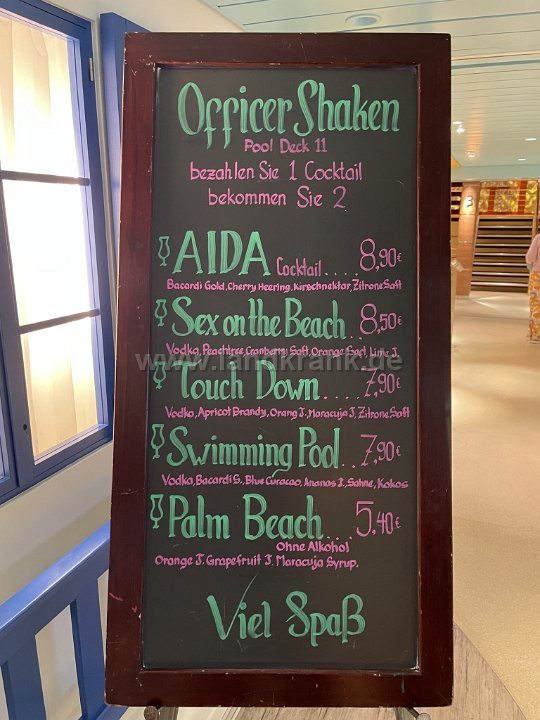 Officer Shaken
Pool Deck 11
bezahlen Sie 1 Cocktail
bekommen Sie 2
AIDA Cocktail.... 8,90€
Bacardi Gold, Cherry Heering, Kirschnektar, Zitrone Saft
Sex on the Beach.. 8,50€
Vodka, Peachtree Cranberry Saft, Orange Saft, Lime J.
www.landkrank.de
Touch Down.... 7,90€
Vodka, Apricot Brandy, Orang J. Maracuja J, Zitrone Saft
Swimming Pool.. 7,90€
Vodka, Bacardi S., Blue Curacao, Ananas J., Sahne, Kokos
Palm Beach... 5,40€
Ohne Alkohol
Orange J. Grapefruit J. Maracuja Syrup.
Viel Spaß